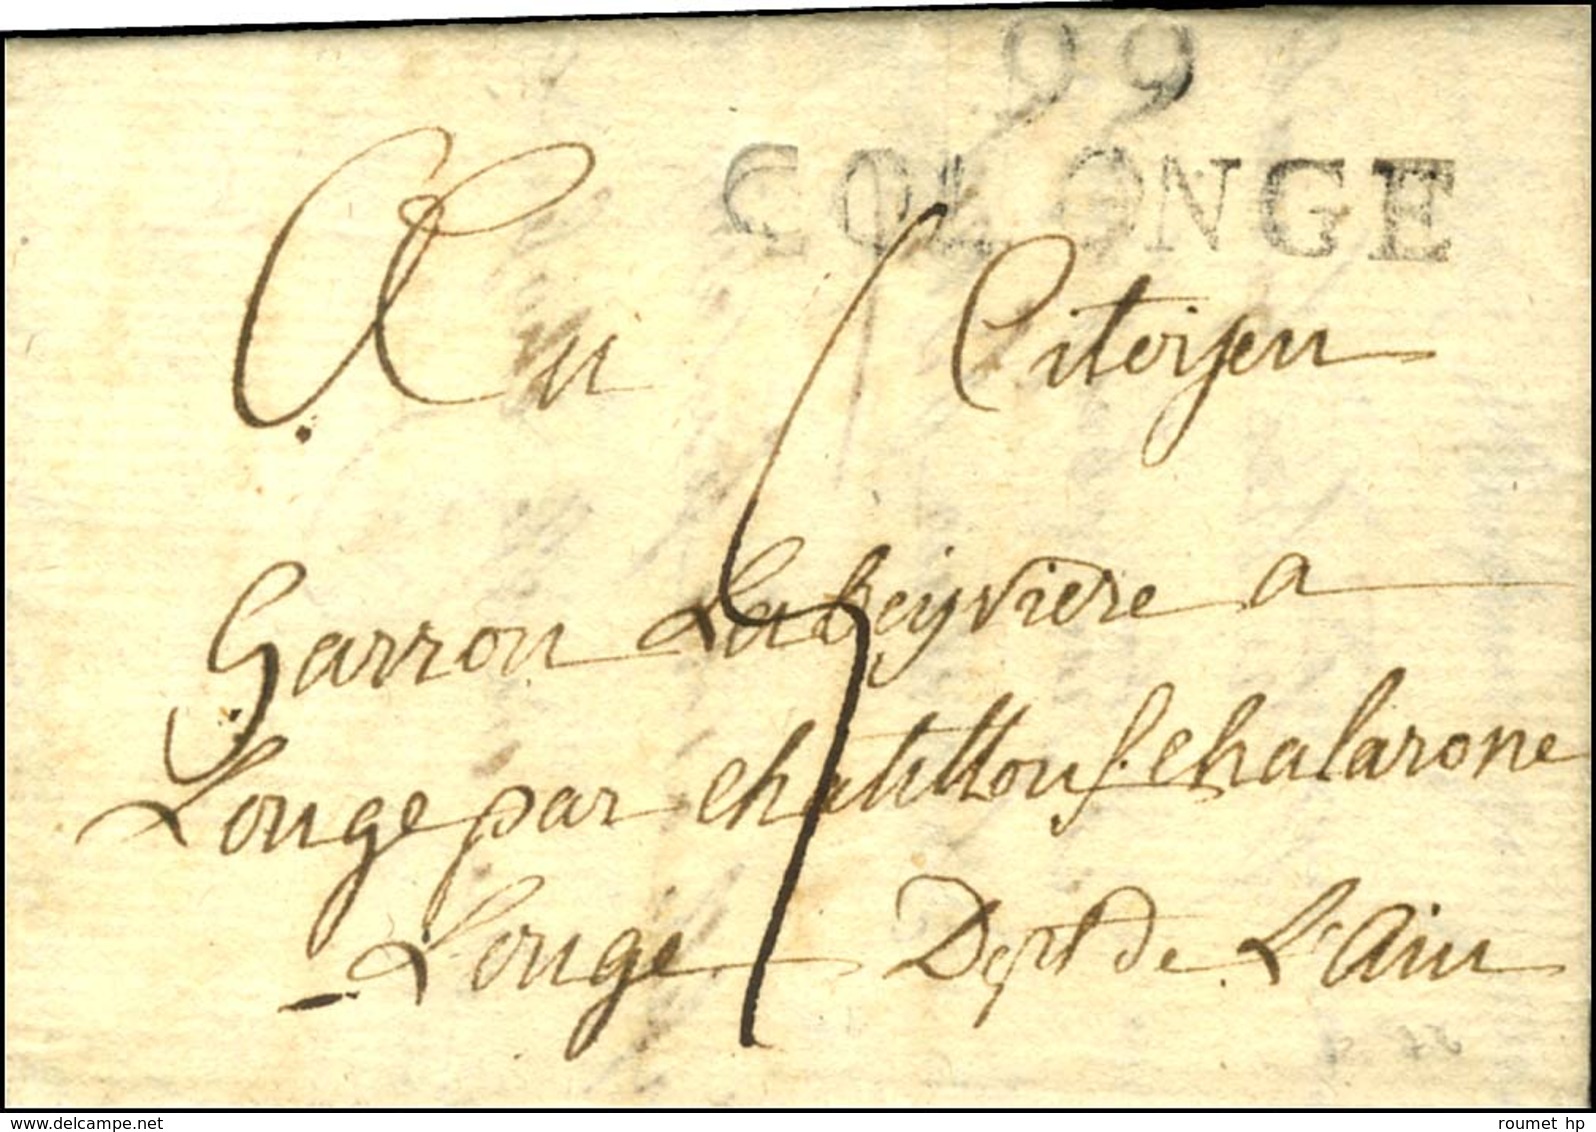 99
COLONGE
Au Citoyen
Garron Labeyviere a
Longe par chatillon s. chalarone
Longe Dept de L'ain
roumet hp